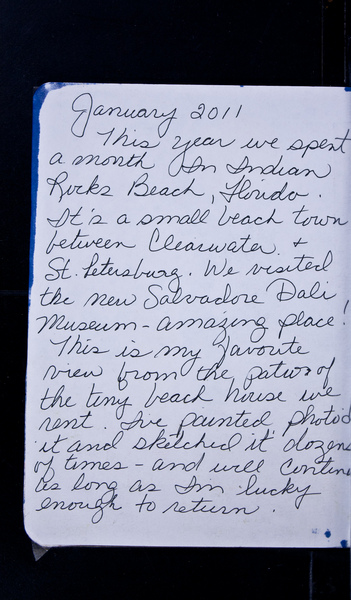 January 2011
This year we spent
a month In Indian
Rocks Beach, Florida.
It's a small beach town
between Clearwater. +
St. Petersburg. We visited
the new Salvadore Dali
Museum - amazing place!
This is my favorite
view from the patio of
the tiny beach house we
rent. I've painted, photo'd
it and sketched it dozens
of times - and will continue
as long as I'm lucky
enough to return.